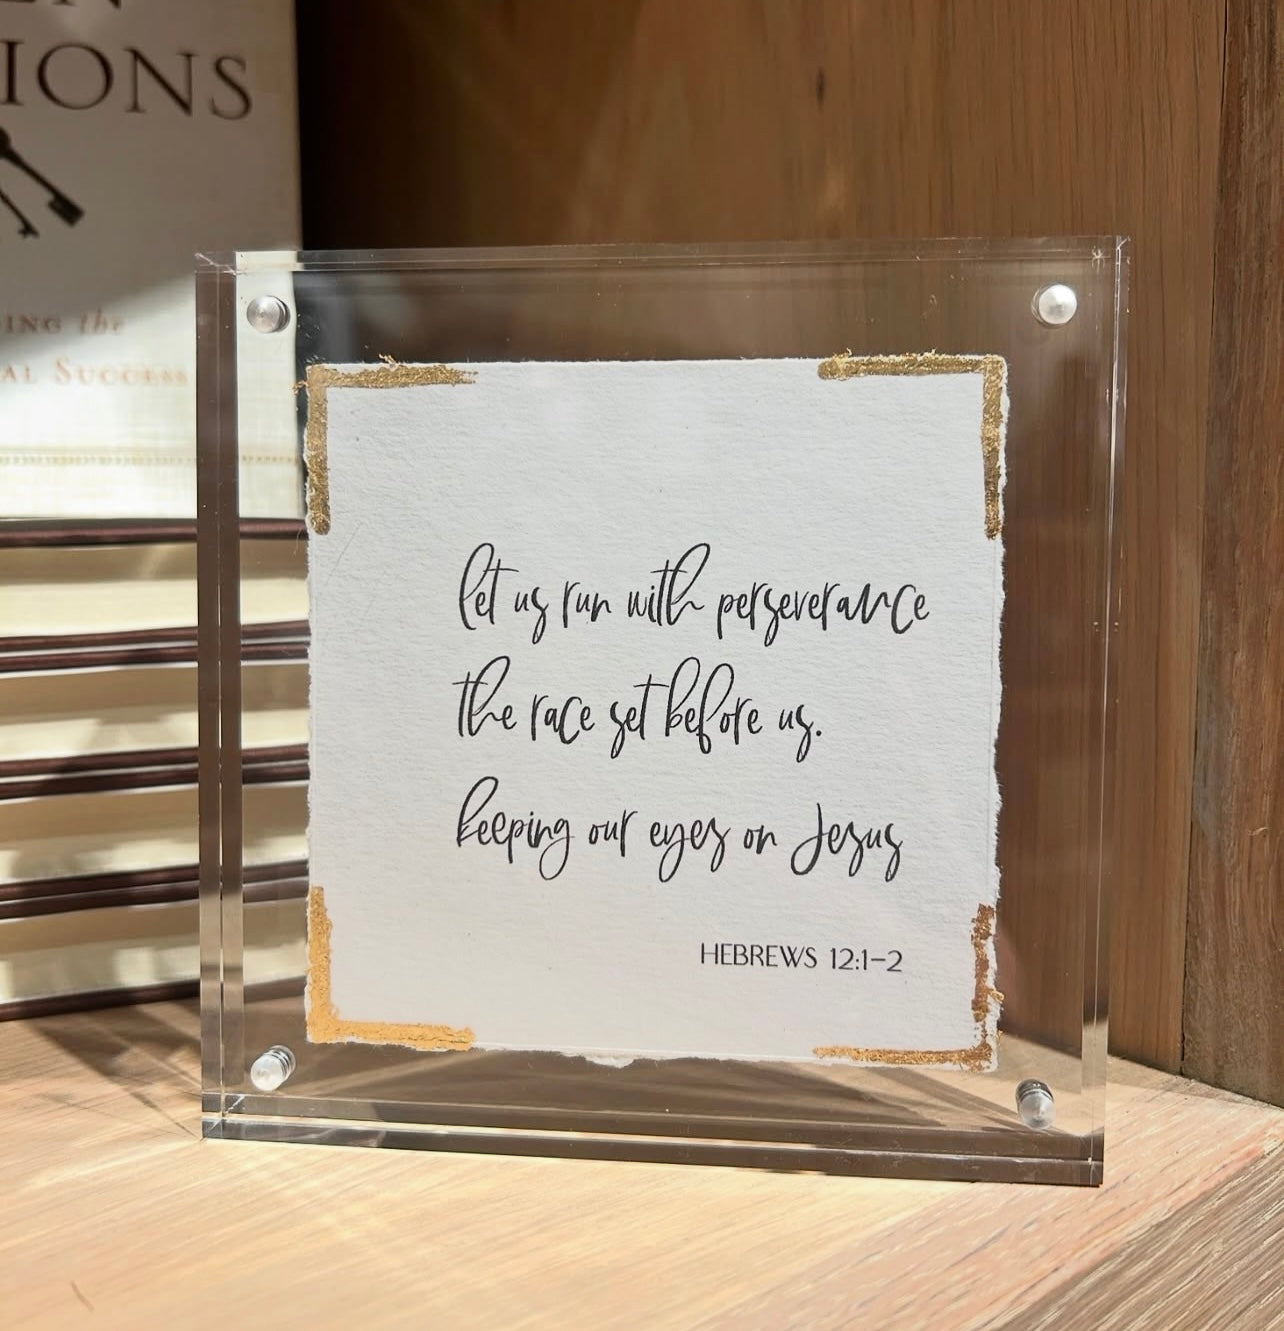 IONS
ING the
AL SUCCESS
let us run with perseverance
the race set before us.
keeping our eyes on Jesus
HEBREWS 12:1-2